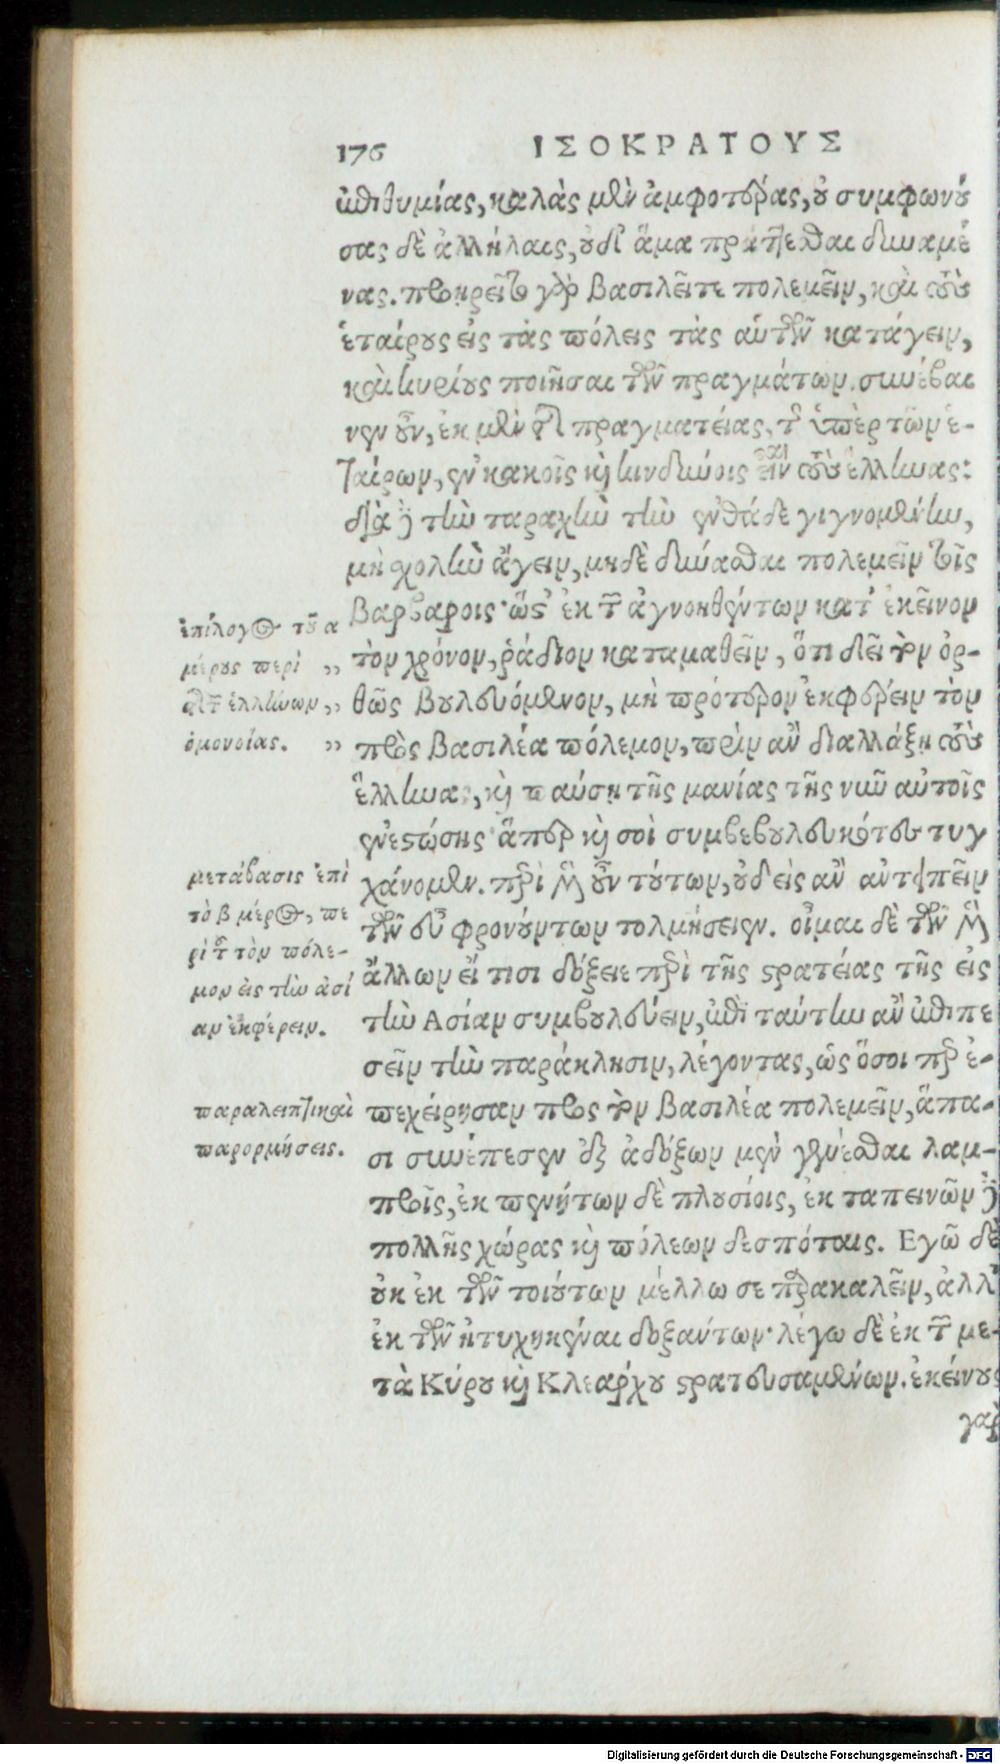 176 ΙΣΟΚΡΑΤΟΥΣ
ἐπιθυμίας, καλὰς μὲν ἀμφοτέρας, οὐ συμφωνού
σας δὲ ἀλλήλαις, οὐδ' ἅμα πράττεσθαι δυναμέ
νας. προῃρεῖτο γὰρ βασιλεῖ τε πολεμεῖν, καὶ τοὺς
ἑταίρους εἰς τὰς πόλεις τὰς αὑτῶν κατάγειν,
καὶ κυρίους ποιῆσαι τῶν πραγμάτων. συνέβαι
νεν οὖν, ἐκ μὲν τῆς πραγματείας, τῆς ὑπὲρ τῶν ἑ-
ταίρων, ἐν κακοῖς καὶ κινδύνοις εἶναι τοὺς ἕλληνας:
διὰ δὲ τὴν ταραχὴν τὴν ἐνθάδε γιγνομένην,
μὴ σχολὴν ἄγειν, μηδὲ δύνασθαι πολεμεῖν τοῖς
βαρβάροις· ὥστ' ἐκ τῶν ἀγνοηθέντων κατ' ἐκεῖνον
τὸν χρόνον, ῥάδιον καταμαθεῖν, ὅτι δεῖ τὸν ὀρ-
θῶς βουλευόμενον, μὴ πρότερον ἐκφέρειν τὸν
πρὸς βασιλέα πόλεμον, πρὶν ἂν διαλλάξῃ τοὺς
ἕλληνας, καὶ παύσῃ τῆς μανίας τῆς νῦν αὐτοῖς
ἐνεστώσης· ἅπερ καὶ σοὶ συμβεβουλευκότες τυγ
χάνομεν. περὶ μὲν οὖν τούτων, οὐδεὶς ἂν ἀντειπεῖν
τῶν εὖ φρονούντων τολμήσειεν. οἶμαι δὲ τῶν μὲν
ἄλλων εἴ τισι δόξειε περὶ τῆς στρατείας τῆς εἰς
τὴν Ασίαν συμβουλεύειν, ἐπὶ ταύτην ἂν ἐπιπε
σεῖν τὴν παράκλησιν, λέγοντας, ὡς ὅσοι περ ἐ-
πεχείρησαν πρὸς τὸν βασιλέα πολεμεῖν, ἅπα-
σι συνέπεσεν ἐξ ἀδόξων μὲν γενέσθαι λαμ-
προῖς, ἐκ πενήτων δὲ πλουσίοις, ἐκ ταπεινῶν δὲ
πολλῆς χώρας καὶ πόλεων δεσπόταις. Εγῶ δὲ
οὐκ ἐκ τῶν τοιούτων μέλλω σε παρακαλεῖν, ἀλλ'
ἐκ τῶν ἠτυχηκέναι δοξάντων· λέγω δὲ ἐκ τῶν με-
τὰ Κύρου καὶ Κλεάρχου στρατευσαμένων. ἐκείνους
γὰρ
ἐπίλογος τοῦ α
μέρους περὶ ,,
τῆς τῶν ἑλλήνων ,,
ὁμονοίας. ,,
μετάβασις ἐπὶ
τὸ β μέρος, πε
ρὶ τοῦ τὸν πόλε-
μον εἰς τὴν ἀσί
αν ἐκφέρειν.
παραλειπτικαὶ
παρορμήσεις.
Digitalisierung gefördert durch die Deutsche Forschungsgemeinschaft - DFG